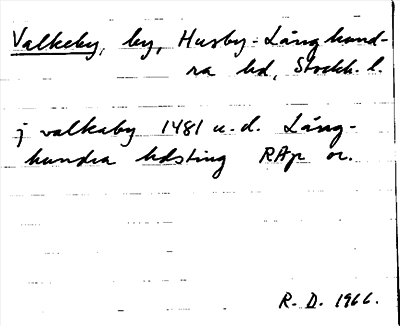 Valkeby, by, Husby-Långhund-
ra hd, Stockh. l.
j valkaby 1481 u.d. Lång-
hundra hdsting RAp or.
R. D. 1966.